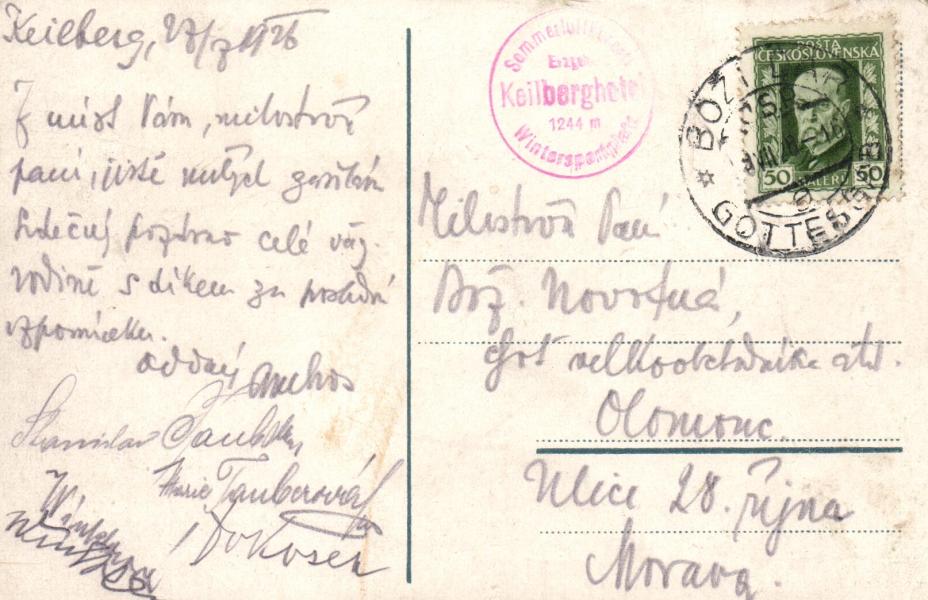 Keilberg, 27/7 1926
Z míst Vám, milostivá
paní, jistě milých zasílám
srdečný pozdrav celé váž.
rodině s díkem za poslední
vzpomínku.
oddaný
Stanislav
Marie Tauberová
Sommerluftkurort
Erzgeb.
Keilberghotel
1244 m
Wintersportplatz
POŠTA
ČESKOSLOVENSKÁ
50 HALÉŘŮ 50
BOŽÍ
GOTTESGAB
Milostivá Paní
Bož. Novotná,
choť velkoobchodníka atd.
Olomouc.
Ulice 28. října
Morava.